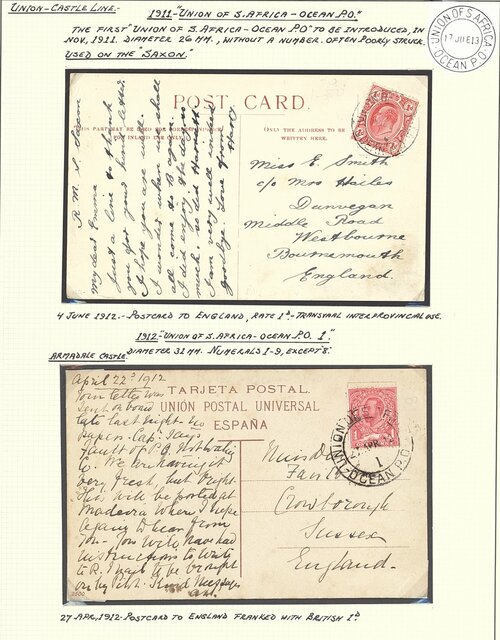 UNION-CASTLE LINE.
1911-"UNION OF S. AFRICA - OCEAN P.O."
THE FIRST "UNION OF S. AFRICA - OCEAN P.O" TO BE INTRODUCED, IN
NOV, 1911. DIAMETER 26 MM., WITHOUT A NUMBER. OFTEN POORLY STRUCK.
USED ON THE "SAXON."
UNION OF S. AFRICA
17 JNE 13
OCEAN P.O.
POST CARD.
THIS PART MAY BE USED FOR
INLAND USE ONLY.
(ONLY THE ADDRESS TO BE
WRITTEN HERE.
R M S Saxon
My dear Emma
Just a line to thank
you for your kind letter.
I hope you are all
I wonder when we shall
all come to B again.
I did enjoy the
much
I am very
Goodbye. Love from
Miss E. Smith
c/o Mrs Hailes
Dunvegan
Middle Road
Westbourne
Bournemouth
England.
4 JUNE 1912.- POSTCARD TO ENGLAND, RATE 1d - TRANSVAAL INTERPROVINCIAL USE.
1912 "UNION OF S. AFRICA - OCEAN P.O. 1."
ARMADALE CASTLE. DIAMETER 31 MM. NUMERALS 1-9, EXCEPT '8'.
TARJETA POSTAL
UNIÓN POSTAL UNIVERSAL
ESPAÑA
April 22d 1912
Your letter was
sent on board
late last night. no
papers. Capt. says
fault of P.O.
Co. We are having it
very fresh, but bright.
This will be posted at
Madeira where I hope
again to hear from
you.
instructions to write
to R.
Kind messages
2500
Crowborough
Sussex
England.
UNION OF S. AFRICA
27 APR 12
1
OCEAN P.O.
27 APR, 1912 - POSTCARD TO ENGLAND FRANKED WITH BRITISH 1d.